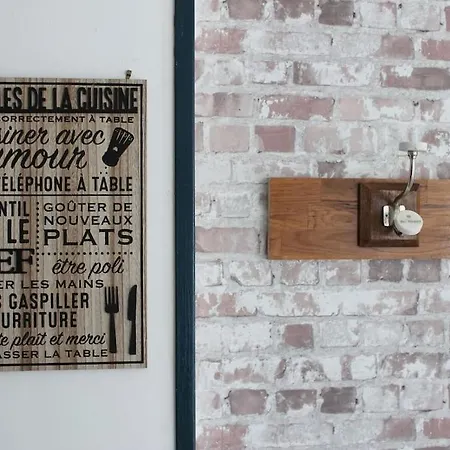 LES DE LA CUISINE
CORRECTEMENT À TABLE
SINER avec
amour
TÉLÉPHONE À TABLE
NTIL
LE
EF
GOÛTER DE
NOUVEAUX
PLATS
être poli
ER LES MAINS
GASPILLER
OURRITURE
te plaît et merci
ASSER LA TABLE